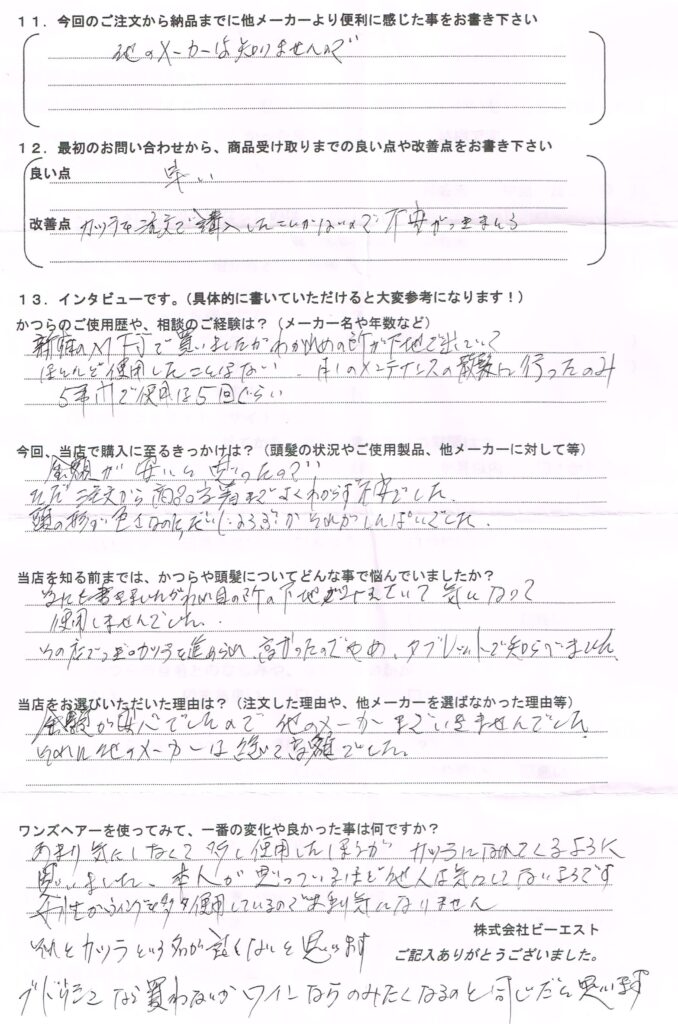 １１．今回のご注文から納品までに他メーカーより便利に感じた事をお書き下さい
他のメーカーは知りませんので
１２．最初のお問い合わせから、商品受け取りまでの良い点や改善点をお書き下さい
良い点 早い
改善点 カツラを注文で購入したことがないので不安がつきまとう
１３．インタビューです。（具体的に書いていただけると大変参考になります！）
かつらのご使用歴や、相談のご経験は？（メーカー名や年数など）
新宿のMTTで買いましたがわかれめの所が下地で出ていて
ほとんど使用したことはない、月1のメンテナンスの散髪に行ったのみ
5年間で使用は5回ぐらい
今回、当店で購入に至るきっかけは？（頭髪の状況やご使用製品、他メーカーに対して等）
金額が安いと思ったので
ただ注文から商品到着までよくわからず不安でした、
頭の形が色々なのでだいじょうぶかそれがしんぱいでした、
当店を知る前までは、かつらや頭髪についてどんな事で悩んでいましたか？
わかれ目の所の下地が 気になって
使用しませんでした、
その店で カツラを進められ、高かったのでやめ、タブレットで知らべました
当店をお選びいただいた理由は？（注文した理由や、他メーカーを選ばなかった理由等）
金額が安心でしたので他のメーカーまでいきませんでした
それに他のメーカーは総じて高額でした。
ワンズヘアーを使ってみて、一番の変化や良かった事は何ですか？
あまり気にしなくて多少使用したほうがカツラになれてくるように
思いました、本人が思っているほど他人は気にしてないようです
女性がウイッグを多々使用しているのであまり気になりません
それとカツラという名が良くないと思います
株式会社ビーエスト
ご記入ありがとうございました。
ブドウシュなら買わないがワインならのみたくなるのと同じだと思います